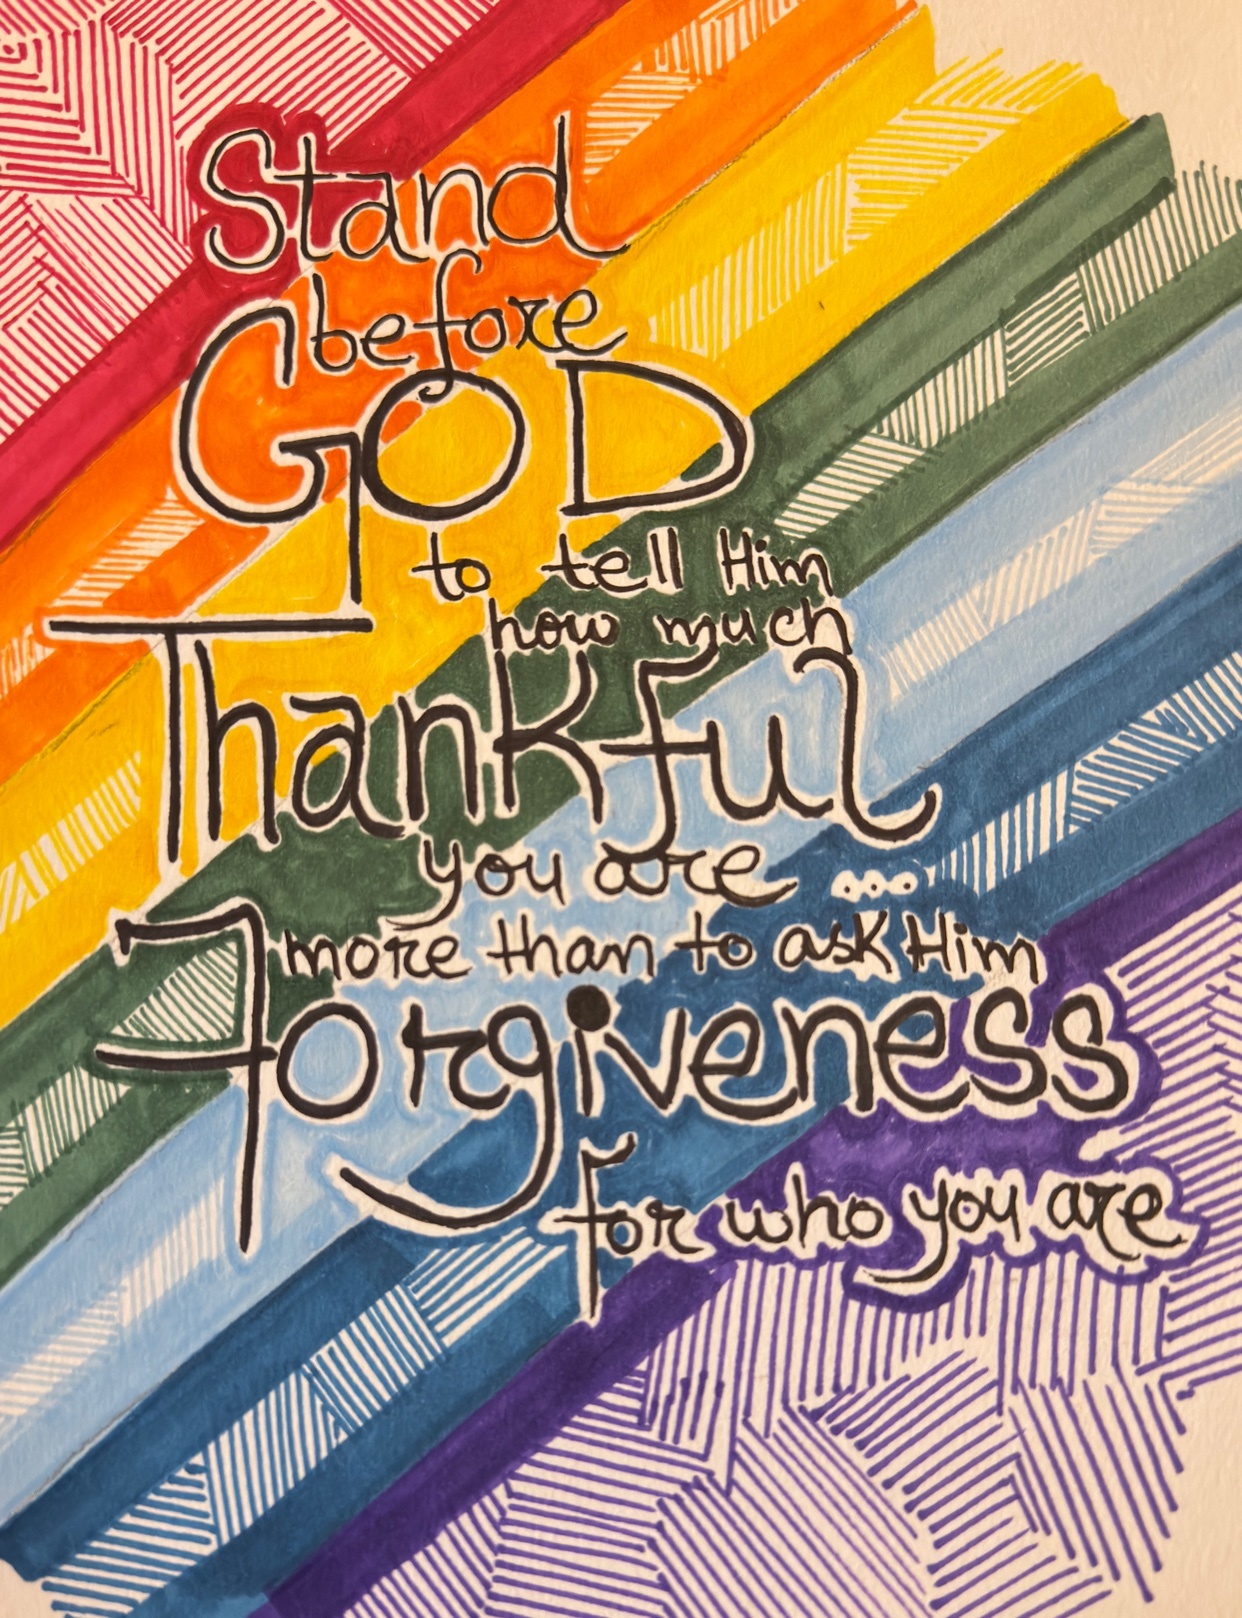 Stand
before
GOD
to tell Him
how much
Thankful
you are ...
more than to ask Him
Forgiveness
for who you are